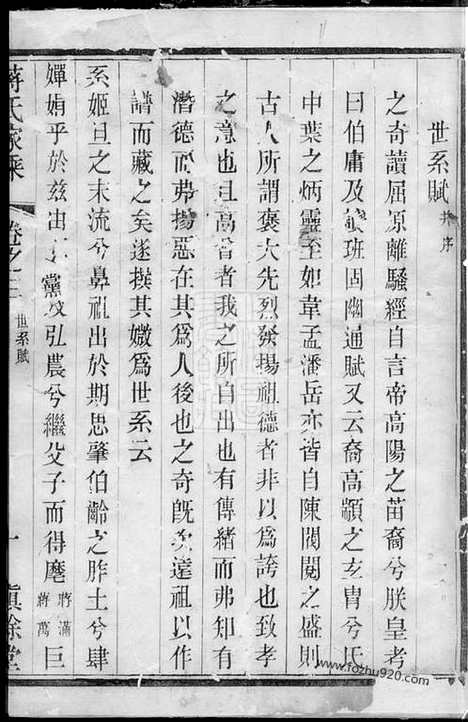 世系賦 并序
之奇讀屈原離騷經自言帝高陽之苗裔兮朕皇考
曰伯庸及班固幽通賦又云裔高顓之玄冑兮氏
中葉之炳靈至如韋孟潘岳亦皆自陳閥閱之盛則
古人所謂褒大先烈發揚祖德者非以為誇也致孝
之意也且高曾者我之所自出也有傳緒而弗知有
潛德而弗揚惡在其為人後也之奇既次遠祖以作
譜而藏之矣遂撰其媺為世系云
系姬旦之末流兮鼻祖出於期思肇伯齡之胙土兮肆
嬋媊乎於茲由 黨 弘農兮繼父子而得麾 蔣滿 蔣萬 巨
蔣氏家乘 卷之三 世系賦 一 慎餘堂
www.fozhu920.com